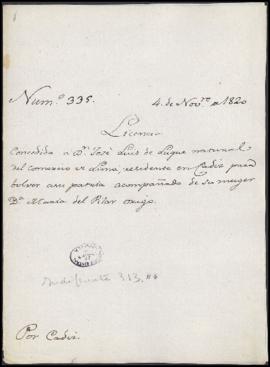 Num.º 335.
4. de Nov.re de 1820
Licencia
Concedida a D.n José Luis de Luque natural
del comercio de Lima, residente en Cadiz para
bolver a su patria acompañado de su muger
D.ª Maria del Pilar
Indiferente 313.
Por Cadiz.